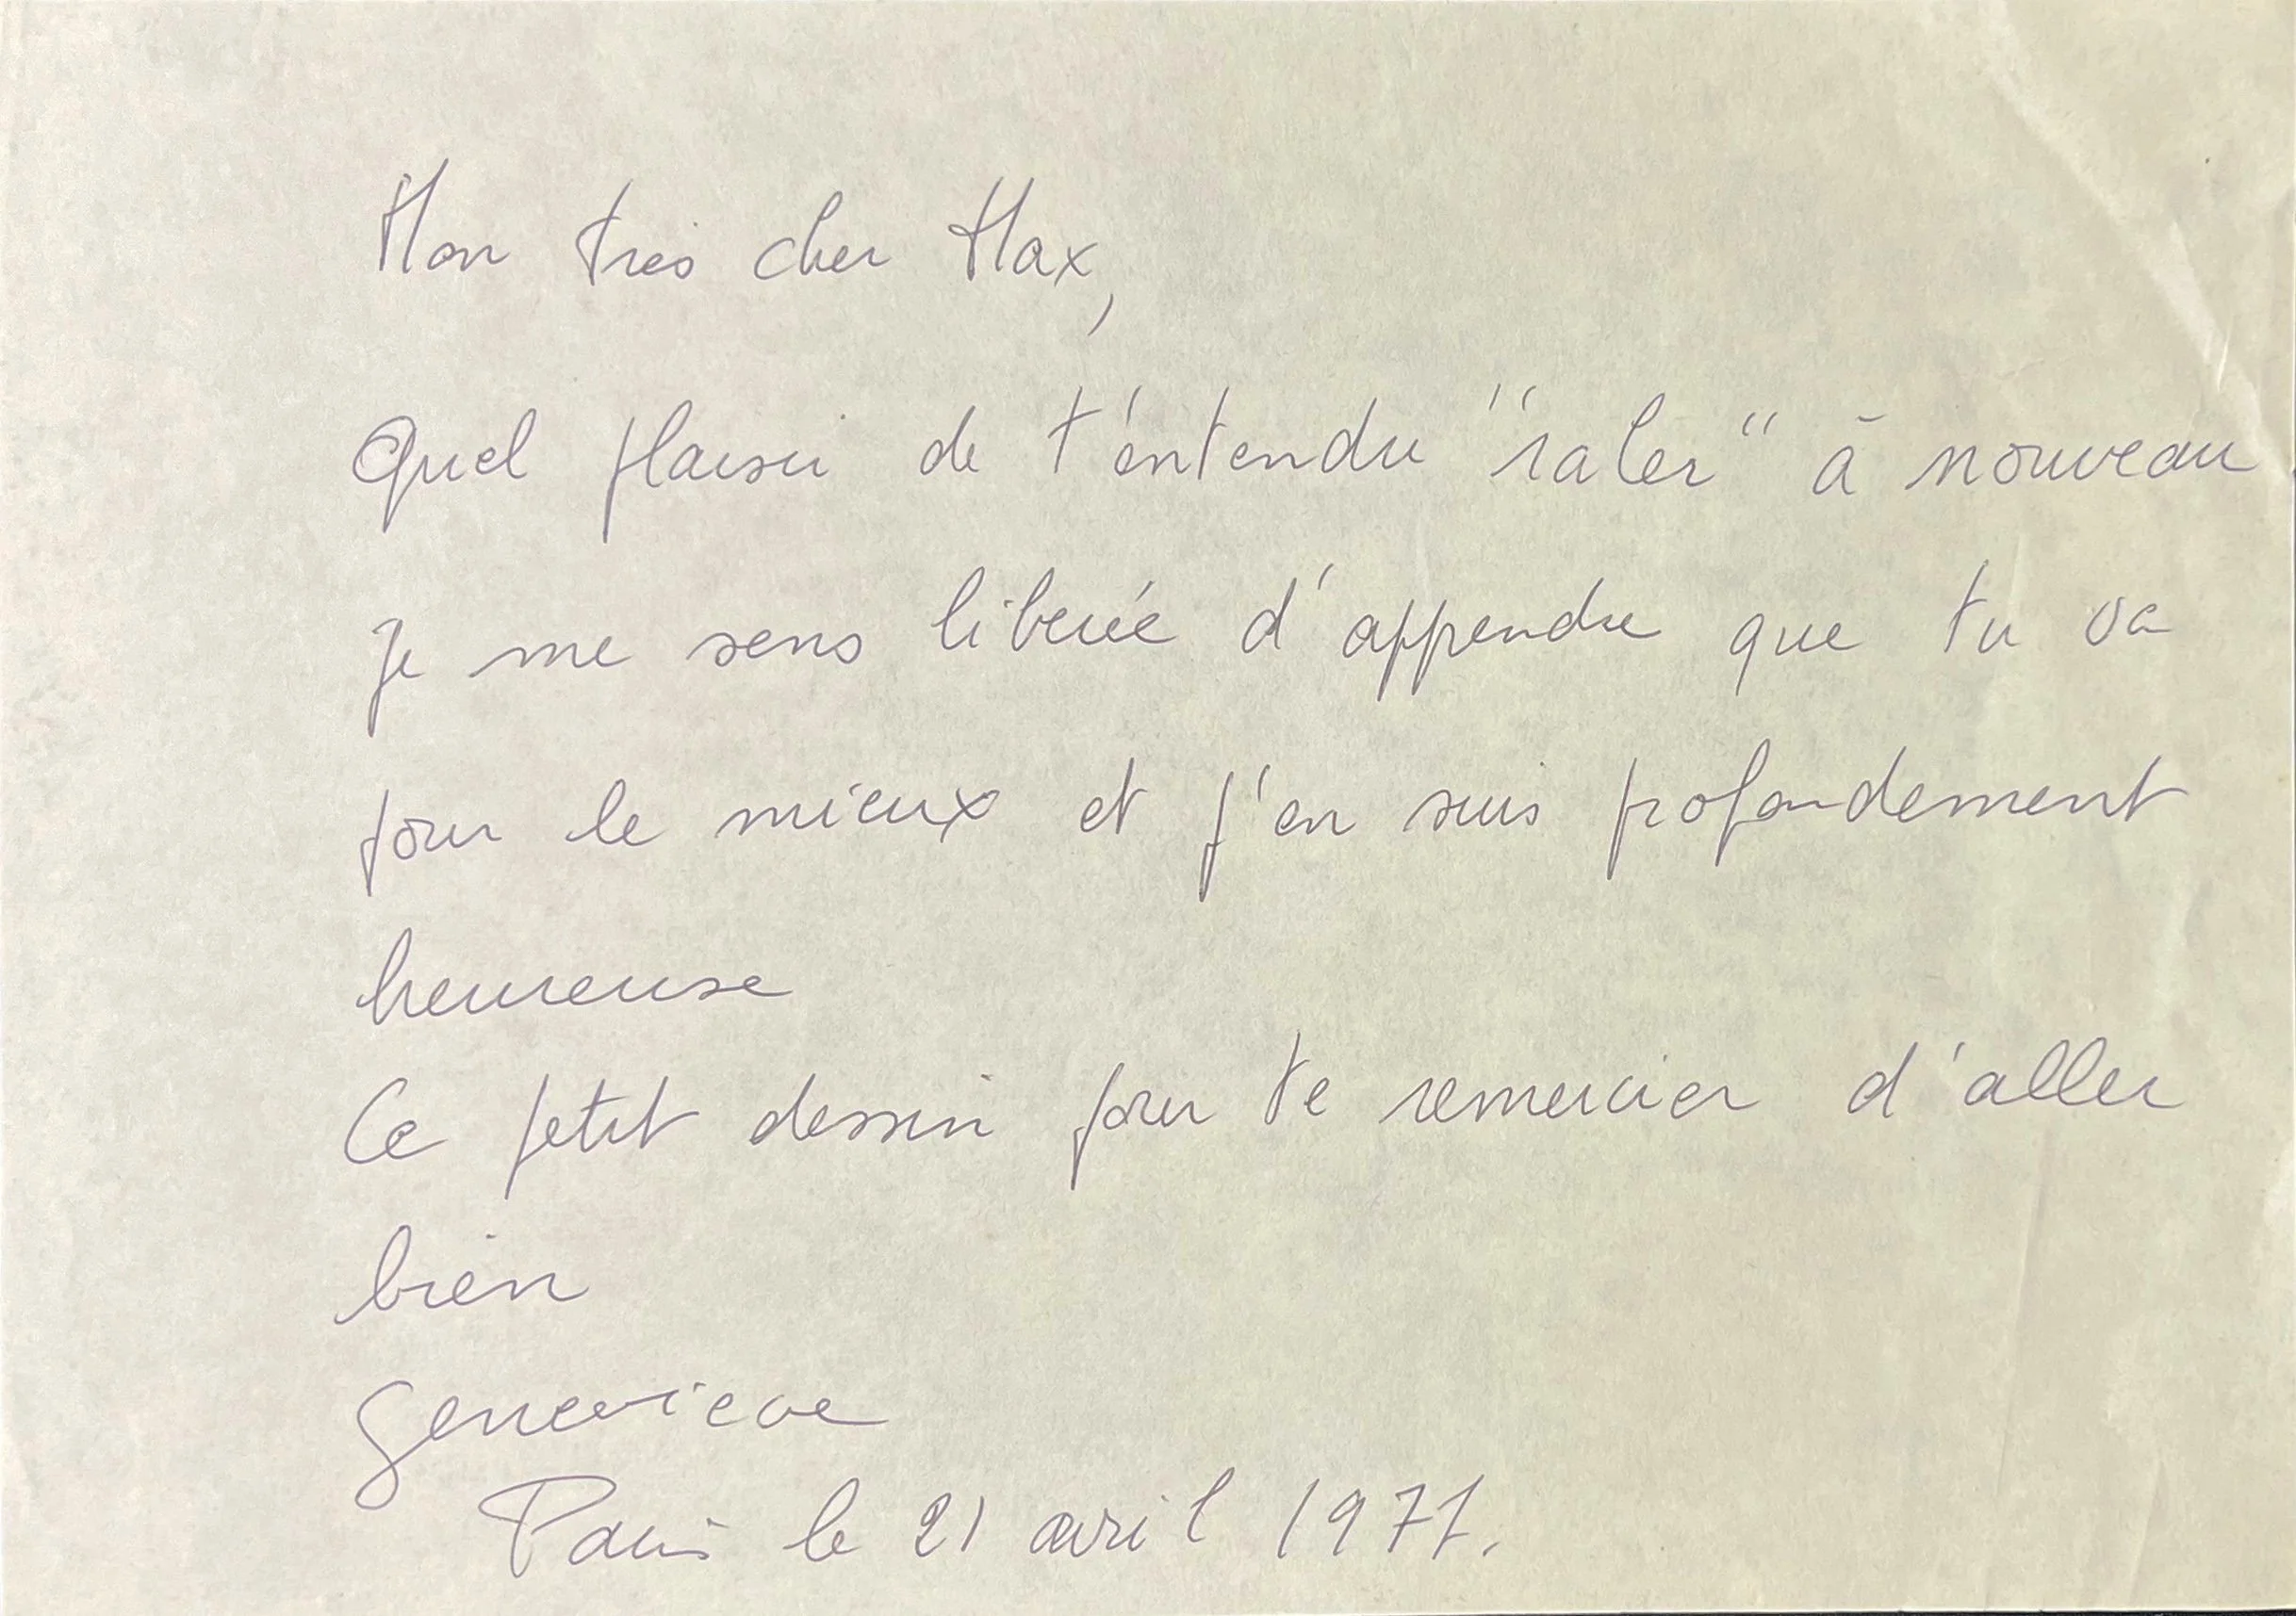 Mon très cher Max,
Quel plaisir de t'entendre "raler" à nouveau
Je me sens liberée d'apprendre que tu va
pour le mieux et j'en suis profondement
heureuse
Ce petit dessin pour te remercier d'aller
bien
Genevieve
Paris le 21 avril 1977.